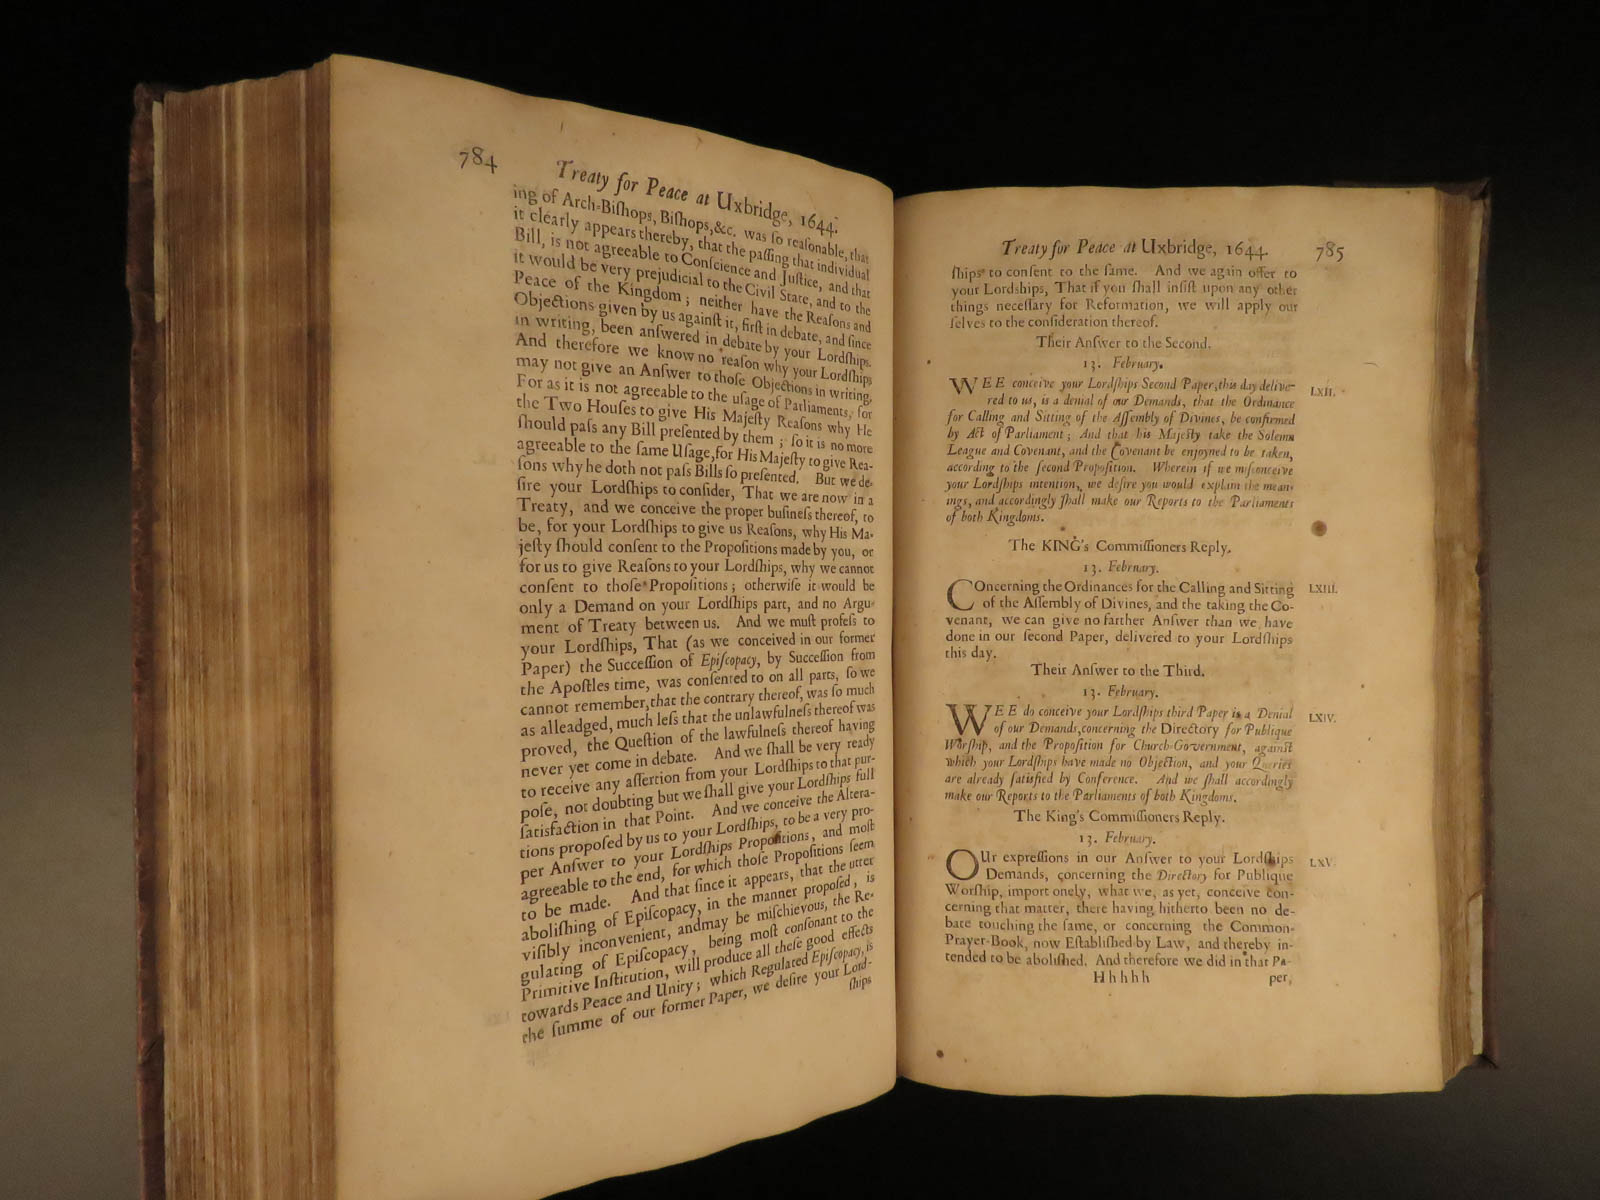 784
Treaty for Peace at Uxbridge, 1644.
ing of Arch-Biſhops, Biſhops, &c. was ſo reaſonable, that
it clearly appears thereby, that the paſſing that individual
Bill, is not agreeable to Conſcience and Juſtice, and that
it would be very prejudicial to the Civil State, and to the
Peace of the Kingdom; neither have the Reaſons and
Objections given by us againſt it, firſt in debate, and ſince
in writing, been anſwered in debate by your Lordſhips.
And therefore we know no reaſon why your Lordſhips
may not give an Anſwer to thoſe Objections in writing,
For as it is not agreeable to the uſage of Parliaments, for
the Two Houſes to give His Majeſty Reaſons why He
ſhould paſs any Bill preſented by them; ſo it is no more
agreeable to the ſame Uſage, for His Majeſty to give Rea-
ſons why he doth not paſs Bills ſo preſented. But we de-
ſire your Lordſhips to conſider, That we are now in a
Treaty, and we conceive the proper buſineſs thereof, to
be, for your Lordſhips to give us Reaſons, why His Ma-
jeſty ſhould conſent to the Propoſitions made by you, or
for us to give Reaſons to your Lordſhips, why we cannot
conſent to thoſe Propoſitions; otherwiſe it would be
only a Demand on your Lordſhips part, and no Argu-
ment of Treaty between us. And we muſt profeſs to
your Lordſhips, That (as we conceived in our former
Paper) the Succeſſion of Epiſcopacy, by Succeſſion from
the Apoſtles time, was conſented to on all parts, ſo we
cannot remember, that the contrary thereof, was ſo much
as alleadged, much leſs that the unlawfulneſs thereof was
proved, the Queſtion of the lawfulneſs thereof having
never yet come in debate. And we ſhall be very ready
to receive any aſſertion from your Lordſhips to that pur-
poſe, not doubting but we ſhall give your Lordſhips full
ſatisfaction in that Point. And we conceive the Altera-
tions propoſed by us to your Lordſhips, to be a very pro-
per Anſwer to your Lordſhips Propoſitions, and moſt
agreeable to the end, for which thoſe Propoſitions ſeem
to be made. And that ſince it appears, that the utter
aboliſhing of Epiſcopacy, in the manner propoſed, is
viſibly inconvenient, andmay be miſchievous, the Re-
gulating of Epiſcopacy, being moſt conſonant to the
Primitive Inſtitution, will produce all theſe good effects
towards Peace and Unity; which Regulated Epiſcopacy, is
the ſumme of our former Paper, we deſire your Lord-
ſhips
Treaty for Peace at Uxbridge, 1644. 785
ſhips to conſent to the ſame. And we again offer to
your Lordſhips, That if you ſhall inſiſt upon any other
things neceſſary for Reformation, we will apply our
ſelves to the conſideration thereof.
Their Anſwer to the Second.
13. February.
WEE conceive your Lordſhips Second Paper, this day delive- LXII.
red to us, is a denial of our Demands, that the Ordinance
for Calling and Sitting of the Aſſembly of Divines, be confirmed
by Act of Parliament; And that his Majeſty take the Solemn
League and Covenant, and the Covenant be enjoyned to be taken,
according to the ſecond Propoſition. Wherein if we miſconceive
your Lordſhips intention, we deſire you would explain the mean-
ings, and accordingly ſhall make our Reports to the Parliaments
of both Kingdoms.
The KING's Commiſſioners Reply.
13. February.
COncerning the Ordinances for the Calling and Sitting LXIII.
of the Aſſembly of Divines, and the taking the Co-
venant, we can give no farther Anſwer than we have
done in our ſecond Paper, delivered to your Lordſhips
this day.
Their Anſwer to the Third.
13. February.
WEE do conceive your Lordſhips third Paper is a Denial LXIV.
of our Demands, concerning the Directory for Publique
Worſhip, and the Propoſition for Church-Government, againſt
which your Lordſhips have made no Objection, and your Queries
are already ſatisfied by Conference. And we ſhall accordingly
make our Reports to the Parliaments of both Kingdoms.
The King's Commiſſioners Reply.
13. February.
OUr expreſſions in our Anſwer to your Lordſhips LXV.
Demands, concerning the Directory for Publique
Worſhip, import onely, what we, as yet, conceive con-
cerning that matter, there having hitherto been no de-
bate touching the ſame, or concerning the Common-
Prayer-Book, now Eſtabliſhed by Law, and thereby in-
tended to be aboliſhed. And therefore we did in that Pa-
Hhhhh per,